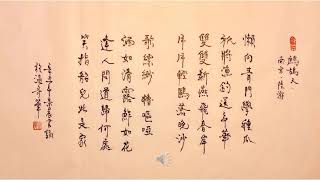 鷓鴣天
南宋 陸游
懶向青門學種瓜
祇將漁釣送年華
雙雙新燕飛春岸
片片輕鷗落晚沙
歌縹緲 艣嘔啞
酒如清露鮓如花
逢人問道歸何處
笑指船兒此是家